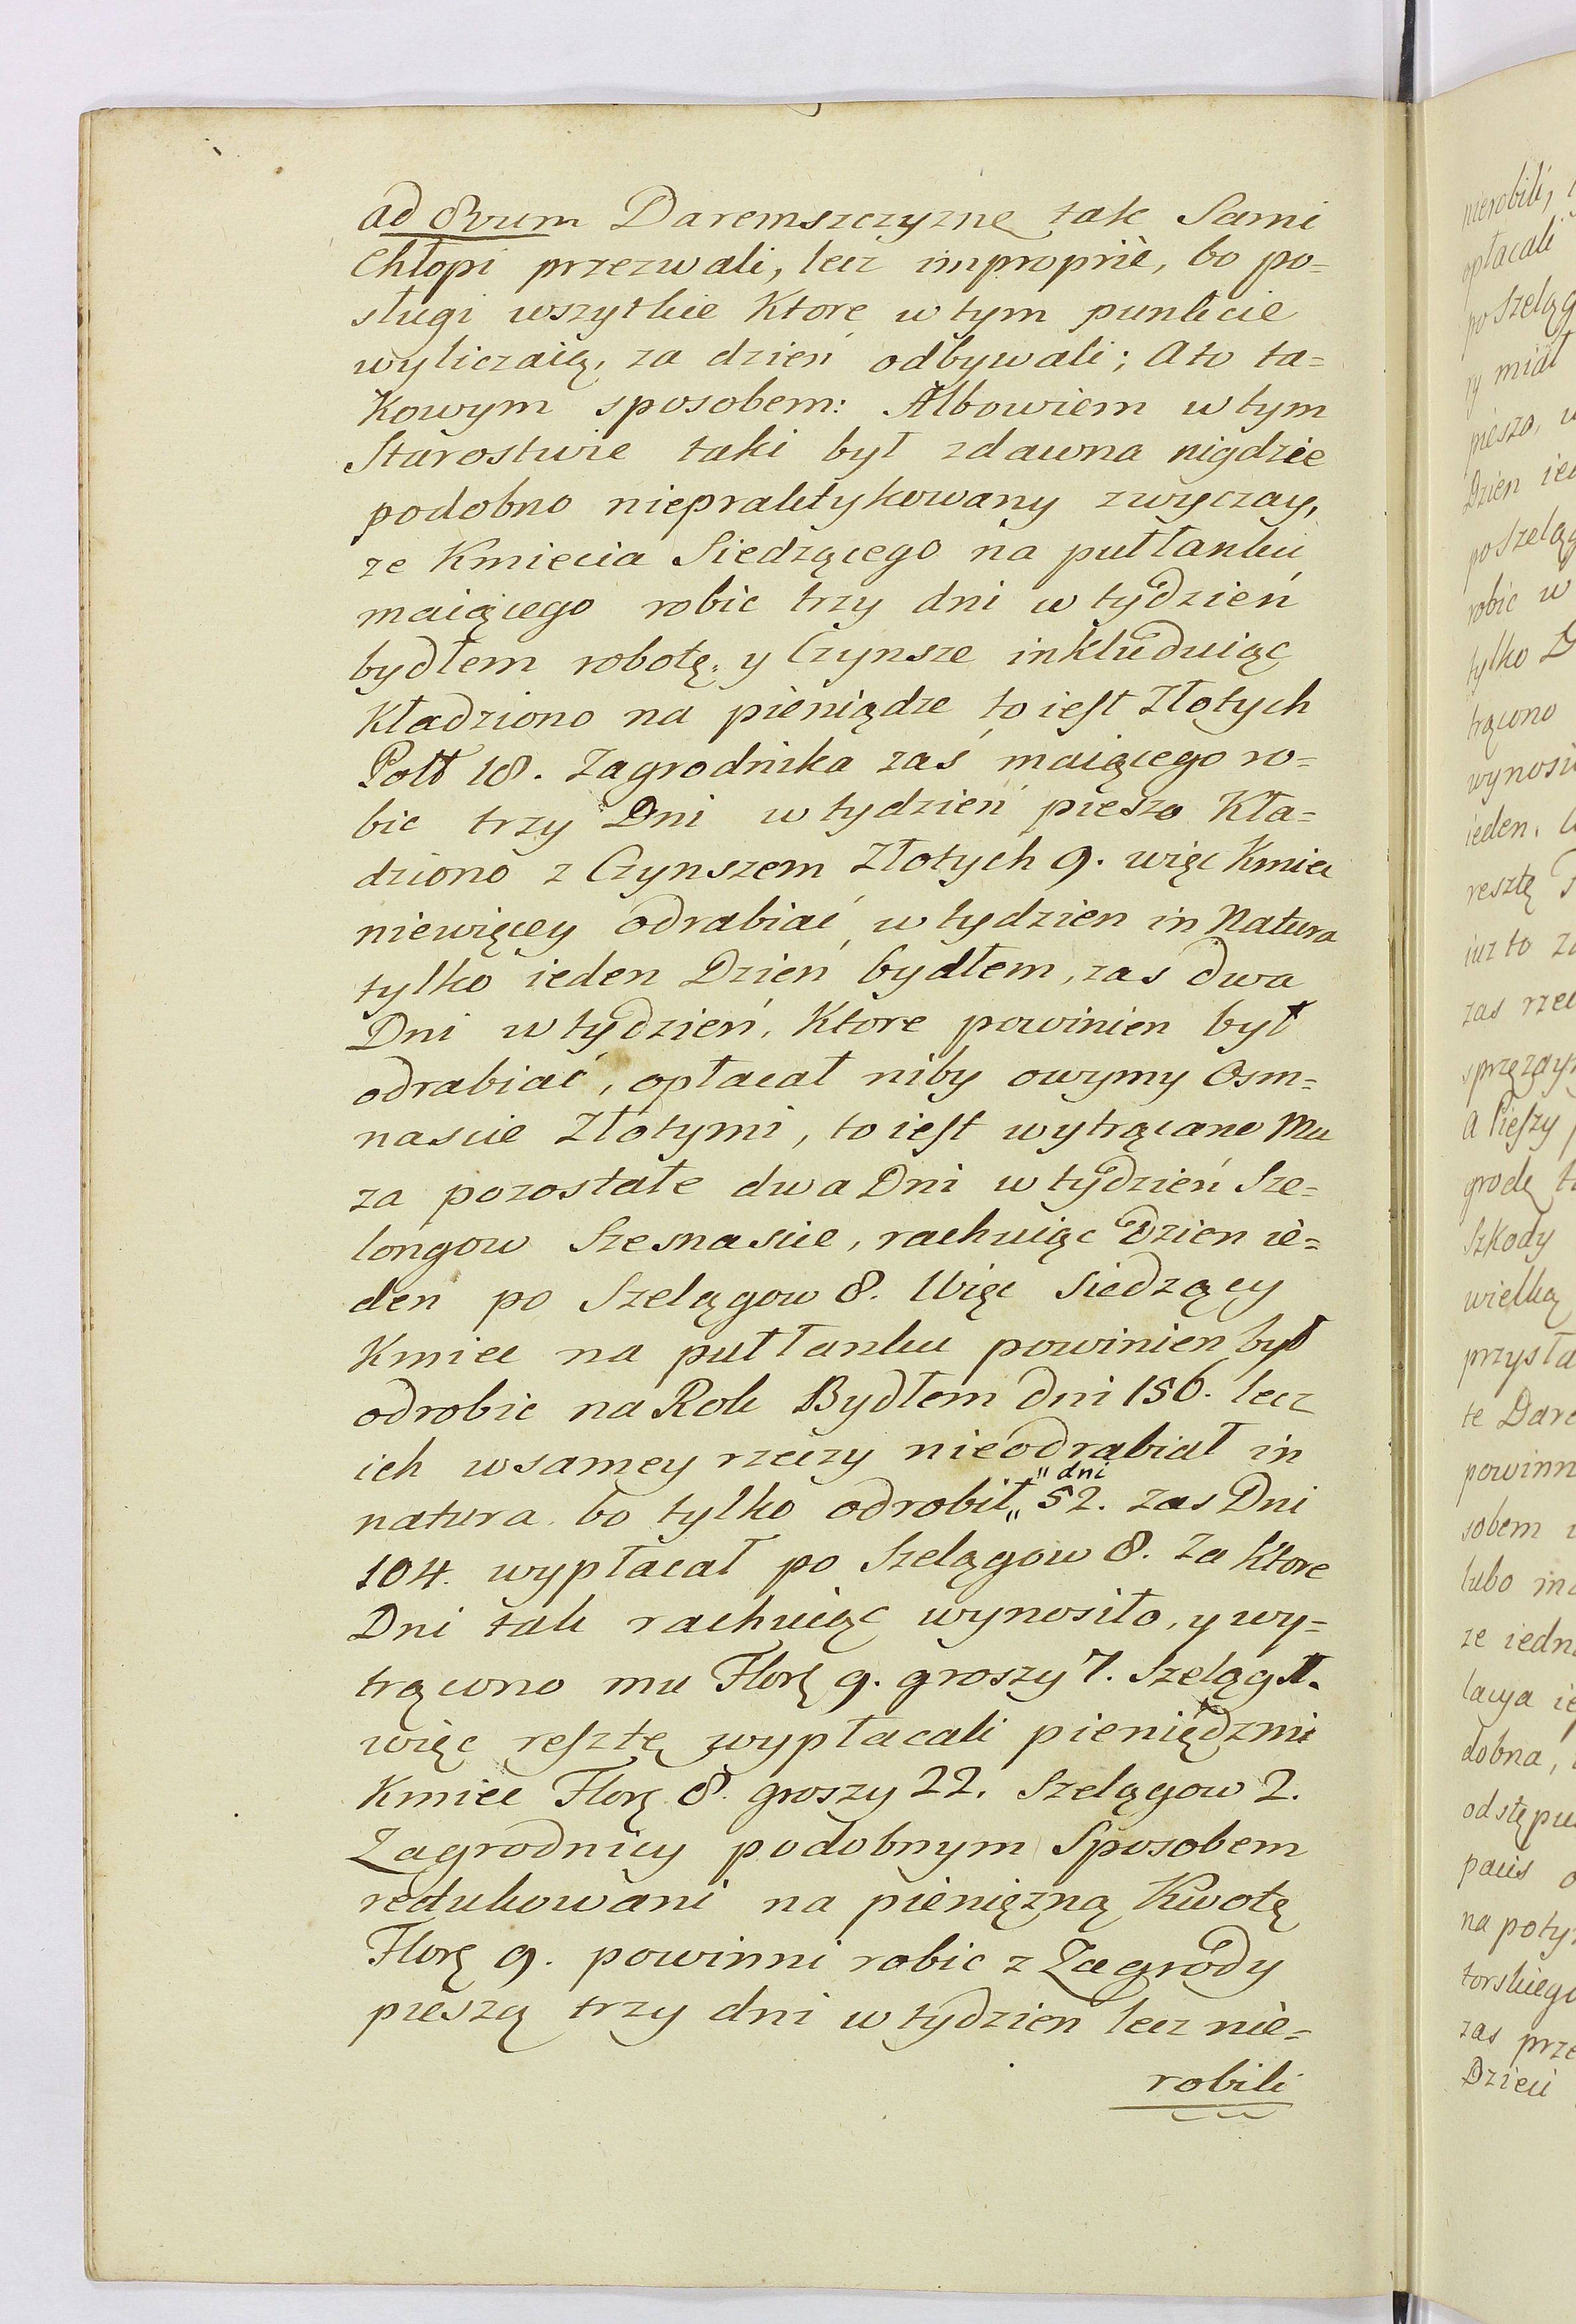 ad 8vum Daremszczyznę tak Sami
Chłopi przezwali, lecz impropriè, bo po=
sługi wszytkie Ktore w tym punkcie
wyliczaią, za dzień odbywali; A to ta=
Kowym sposobem: Albowiem w tym
Starostwie taki był zdawna nigdzie
podobno niepraktykowany zwyczay,
ze Kmiecia Siedzącego na pułłanku
maiącego robic trzy dni w tydzień
bydłem robotę, y Czynsze inkluduiąc
Kładziono na pieniądze to iest Złotych
Polł 18. Zagrodnika zaś maiącego ro=
bic trzy Dni w tydzień pieszo Kła=
dziono z Czynszem Złotych 9. więc Kmiec
niewięcey odrabiać w tydzien in Natura
tylko ieden Dzień bydłem, zas dwa
Dni w tydzień, Ktore powinien był
odrabiać, opłacał niby owymy Osm=
nascie Złotymi, to iest wytrącano Mu
za pozostałe dwa Dni w tydzień Sze=
longow Szesnascie, rachuiąc Dzien ie=
den po Szelągow 8. Więc Siedzący
Kmiec na pułłanku powinien był
odrobic na Rok Bydłem dni 156. lecz
ich w samey rzeczy nieodrabiał in
natura bo tylko odrobił „ dni 52. zas Dni
104. wypłacał po Szelągow 8. Za Ktore
Dni tak rachuiąc wynosiło, y wy=
trącono mu Florę 9. groszy 7. Szeląg 1.
więc resztę wypłacali pieniędzmi
Kmiec Florę 8. groszy 22. Szelągow 2.
Zagrodnicy podobnym Sposobem
redukowani na pienięzną Kwotę
Florę 9. powinni robic z Zagrody
pieszą trzy dni w tydzien lecz nie=
robili
nierobili,
opłacali
po Szeląg
ry miał
pieszo,
Dzien ied
po szeląg
robic w
tylko D
trącono
wynosi
ieden.
resztę
iuz to
zas rzec
sprzęzay
A Pieszy
grodę
Szkody
wielką
przysta
te Dare
powinn
sobem
lubo
ze iedn
lacya ie
dobna,
odstępu
paus
na poty
torskiego
zas prze
Dzieci